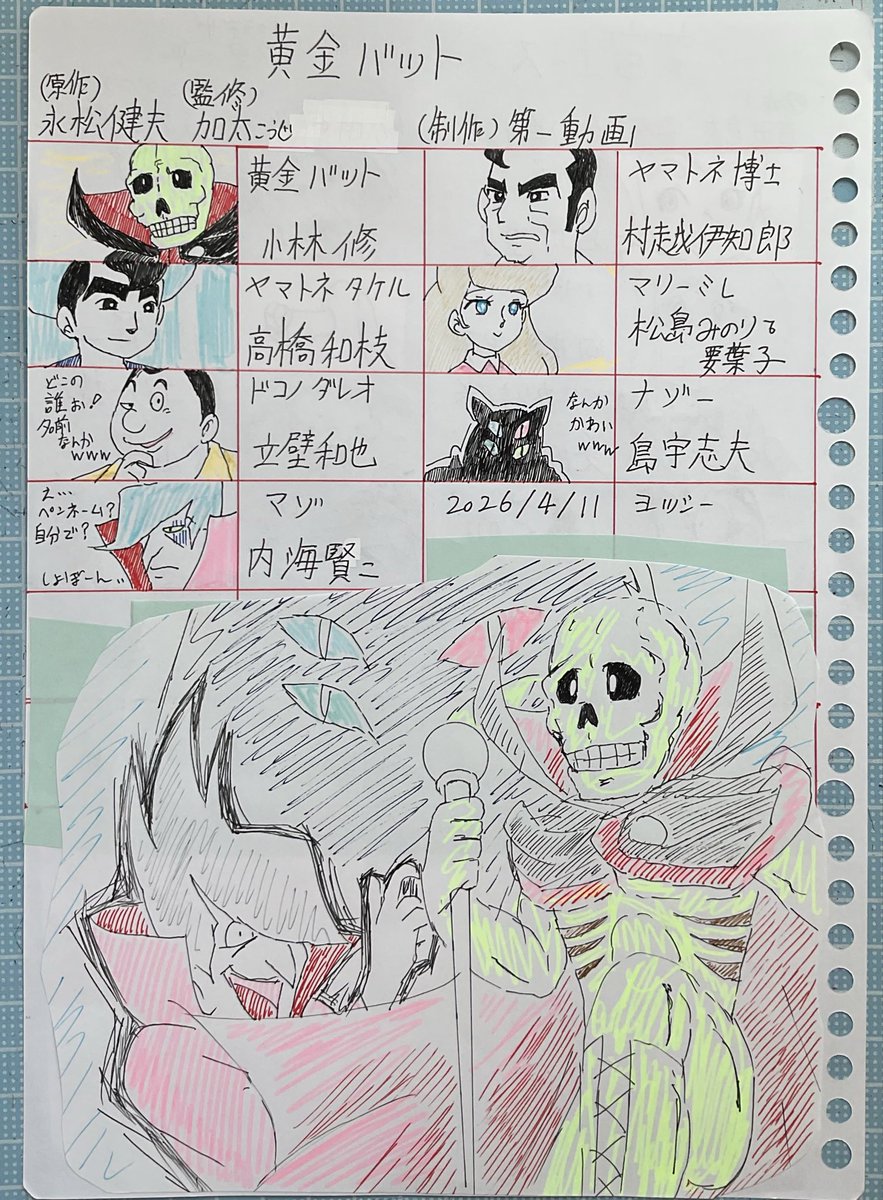 黄金バット
(原作) (監修)
永松健夫 加太こうじ (制作)第一動画
黄金バット
小林修
ヤマトネ博士
村越伊知郎
ヤマトネタケル
高橋和枝
マリーミレ
松島みのり&
要葉子
どこの
誰お!
名前
なんか
www
ドコノダレオ
立壁和也
なんか
かわいい
www
ナゾー
島宇志夫
え…
ペンネーム?
自分で?
しょぼーん..
マゾ
内海賢二
2026/4/11
ヨッシー